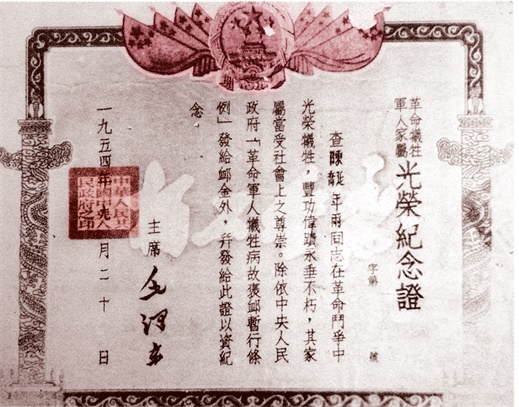 革命犧牲
軍人家屬
光榮紀念證
字第 號
查陳 年兩同志在革命鬥爭中
光榮犧牲，豐功偉蹟永垂不朽，其家
屬當受社會上之尊崇。除依中央人民
政府「革命軍人犧牲病故褒卹暫行條
例」發給卹金外，幷發給此證以資紀
念．
主席 毛澤東
一九五四年 月二十日
中華人民共
和國中央人
民政府之印